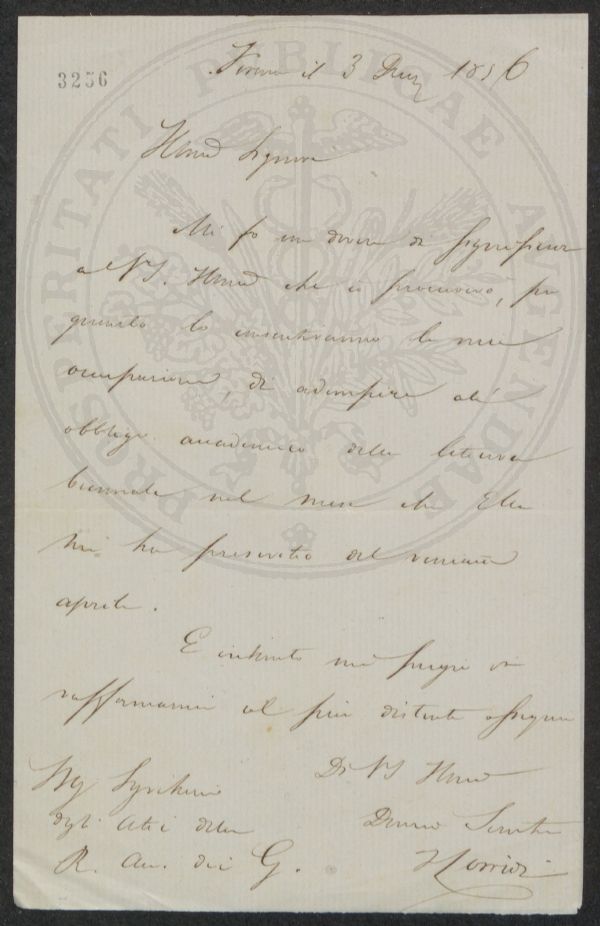 3256
il 3 1856
Signore
Mi fo un dovere di significare
a V.S. che io procurerò, per
quanto lo consentiranno le mie
occupazioni, di adempire all'
obbligo accademico della lettura
biennale nel mese che Ella
mi ha prescritto del venturo
aprile.
E intanto mi pregio di
raffermarmi col più distinto ossequio
Di V.S.
Sig. Segretario
degli Atti della
R. Acc. dei G.
PROSPERITATI PUBLICAE AUGENDAE